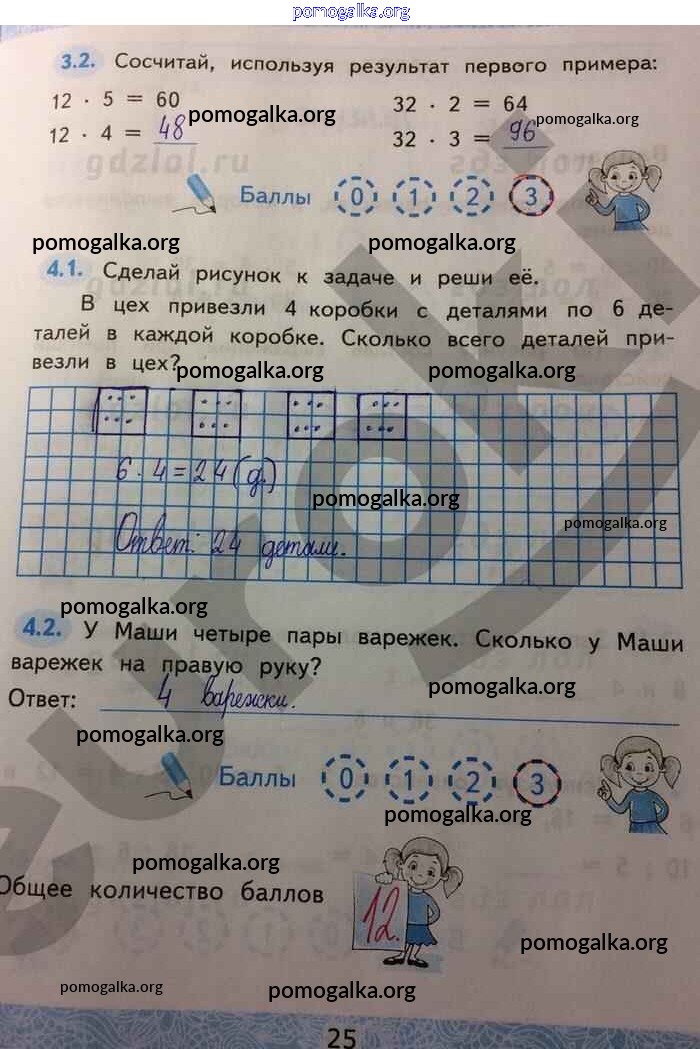 pomogalka.org
3.2. Сосчитай, используя результат первого примера:
12 · 5 = 60
32 · 2 = 64
pomogalka.org
pomogalka.org
12 · 4 = 48
32 · 3 = 96
gdzlol.ru
Баллы 0 1 2 3
pomogalka.org
pomogalka.org
4.1. Сделай рисунок к задаче и реши её.
В цех привезли 4 коробки с деталями по 6 де-
талей в каждой коробке. Сколько всего деталей при-
везли в цех?
pomogalka.org
pomogalka.org
6 · 4 = 24 (д.)
pomogalka.org
pomogalka.org
Ответ: 24 детали.
pomogalka.org
4.2. У Маши четыре пары варежек. Сколько у Маши
варежек на правую руку?
pomogalka.org
Ответ: 4 варежки.
pomogalka.org
Баллы 0 1 2 3
pomogalka.org
pomogalka.org
Общее количество баллов 12.
pomogalka.org
pomogalka.org
pomogalka.org
25
euroki